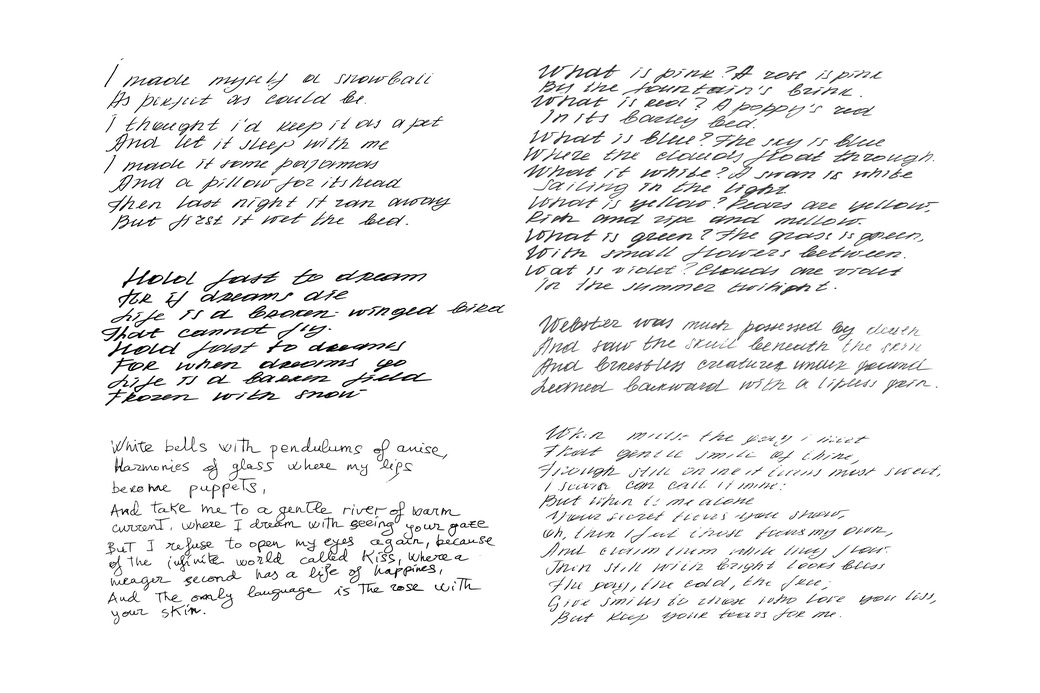 I made myself a snowball
As perfect as could be.
I thought i'd keep it as a pet
And let it sleep with me
I made it some pajamas
And a pillow for its head
Then last night it ran away
But first it wet the bed.
Hold fast to dream
For if dreams die
Life is a broken-winged bird
That cannot fly.
Hold fast to dreams
For when dreams go
Life is a barren field
Frozen with snow
White bells with pendulums of anise,
Harmonies of glass where my lips
become puppets,
And take me to a gentle river of warm
current, where I dream with seeing your gaze
But I refuse to open my eyes again, because
of the infinite world called Kiss, where a
meager second has a life of happines,
And The only language is The rose with
your skin.
What is pink? A rose is pink
By the fountain's brink.
What is red? A poppy's red
In its barley bed.
What is blue? The sky is blue
Where the clouds float through.
What it white? A swan is white
Sailing in the light.
What is yellow? Pears are yellow,
Rich and ripe and mellow.
What is green? The grass is green,
With small flowers between.
Wat is violet? Clouds are violet
In the summer twilight.
Webster was much possessed by death
And saw the skull beneath the skin
And breastless creatures under ground
Leaned backward with a lipless grin.
When the gay i meet
That gentle smile of thine,
Though still on me it turns most sweet,
I can call it mine:
But when to me alone
Your secret tears you show,
Oh, then I feel those tears my own,
And claim them while they flow.
Then still with bright looks bless
The gay, the cold, the free;
Give smiles to those who love you less,
But keep your tears for me.